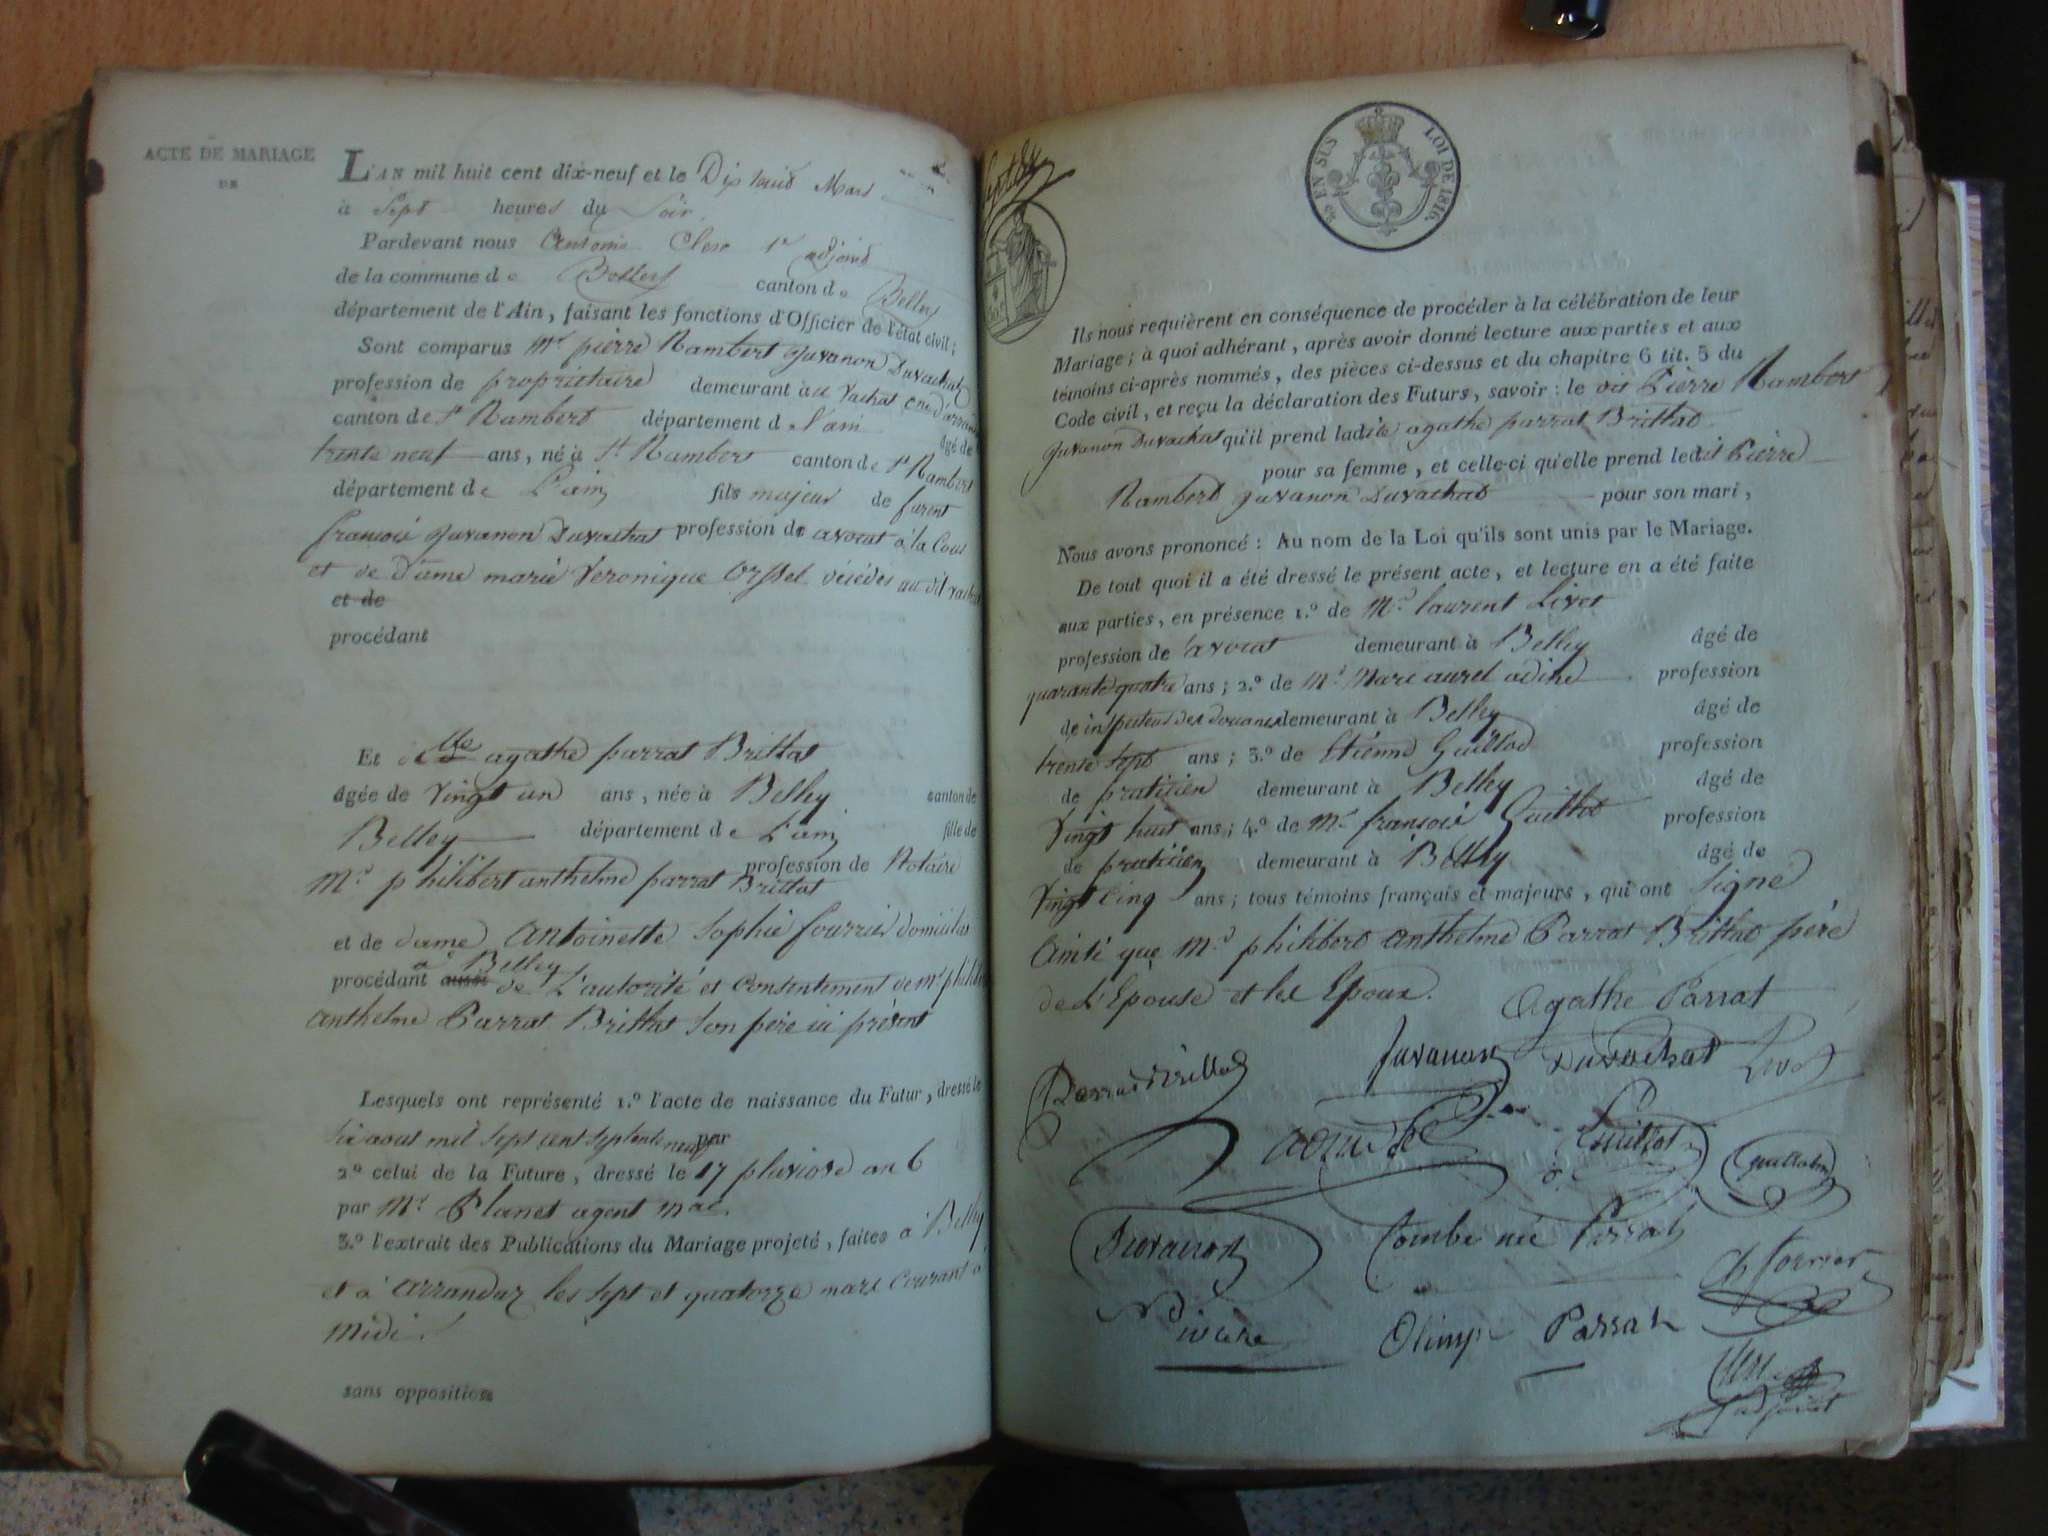 ACTE DE MARIAGE
DE
L'AN mil huit cent dix-neuf et le Dix huit Mars
à Sept heures du Soir
Pardevant nous Antoine Clerc 1er adjoint
de la commune de Belley canton de Belley
département de l'Ain, faisant les fonctions d'Officier de l'état civil;
Sont comparus Mr pierre Rambert Juvanon Duvachat
profession de propriétaire demeurant au Vachat
canton de St Rambert département de l'ain âgé de
trente neuf ans, né à St Rambert canton de St Rambert
département de L'ain fils majeur de
françois Juvanon Duvachat profession de avocat à la Cour
et de dame marie Veronique Orssel décédés audit vachat
et de
procédant
Et dlle agathe parrat Brillat
âgée de vingt un ans, née à Belley canton de
Belley département de L'ain fille de
Mr philibert anthelme parrat Brillat profession de Notaire
et de dame Antoinette Sophie domiciliés
à Belley
procédant aussi de L'autorité et consentement de mr philibert
anthelme Parrat Brillat son père ici présent
Lesquels ont représenté 1.º l'acte de naissance du Futur, dressé le
six aout mil sept cent septante neuf par
2º celui de la Future, dressé le 17 pluviose an 6
par Mr Planet agent
3.º l'extrait des Publications du Mariage projeté, faites à Belley
et à arrandaz les sept et quatorze mars courant à
midi.
sans opposition
20 EN SUS
LOI DE 1816.
Ils nous requièrent en conséquence de procéder à la célébration de leur
Mariage; à quoi adhérant, après avoir donné lecture aux parties et aux
témoins ci-après nommés, des pièces ci-dessus et du chapitre 6 tit. 5 du
Code civil, et reçu la déclaration des Futurs, savoir: le dit Pierre Rambert
Juvanon Duvachat qu'il prend ladite agathe parrat Brillat
pour sa femme, et celle-ci qu'elle prend ledit Pierre
Rambert Juvanon Duvachat pour son mari,
Nous avons prononcé: Au nom de la Loi qu'ils sont unis par le Mariage.
De tout quoi il a été dressé le présent acte, et lecture en a été faite
aux parties, en présence 1.º de Mr laurent Livet
profession de avocat demeurant à Belley âgé de
quarante quatre ans; 2.º de Mr Marc aurel adine profession
de inspecteur des douanes demeurant à Belley âgé de
trente sept ans; 3.º de Etienne Guillot profession
de praticien demeurant à Belley âgé de
Vingt huit ans; 4.º de Mr françois Guillot profession
de praticien demeurant à Belley âgé de
Vingt cinq ans; tous témoins français et majeurs, qui ont signé
Ainsi que Mr philibert anthelme Parrat Brillat père
de L'Epouse et les Epoux. Agathe Parrat
Parrat Brillat Juvanon Duvachat Livet
Guillot
Combe née Parrat
Olimpe Parrat
Clerc
adjoint